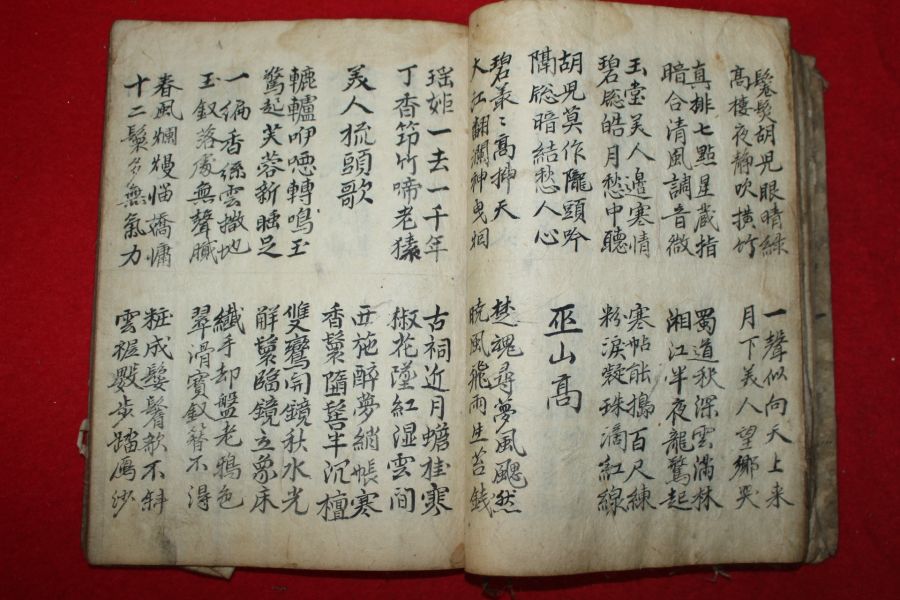 鬈髮胡兒眼晴綠
高樓夜靜吹橫竹
一聲似向天上来
月下美人望鄉哭
真排七點星藏指
暗合清風調音徵
蜀道秋深雲滿林
湘江半夜龍驚起
玉堂美人邊寒情
碧牕皓月愁中聽
寒帖能搗百尺練
粉淚凝珠滴紅線
胡児莫作隴頭吟
隔牕暗結愁人心
巫山高
碧叢〻高揷天
大江翻瀾神曳烟
楚魂尋夢風颸然
曉風飛雨生苔錢
瑶姫一去一千年
丁香筇竹啼老猿
古祠近月蟾桂寒
椒花墜紅湿雲間
美人梳頭歌
西施醉夢綃帳寒
香鬟隨髻半沉檀
轆轤咿啞轉鳴玉
驚起芙蓉新睡足
雙鸞開鏡秋水光
解鬟臨鏡立象床
一編香絲雲撒地
玉釵落處無聲膩
纖手却盤老鴉色
翠滑寶釵簪不得
春風爛熳惱嬌慵
十二鬟多無氣力
粧成鬟鬌欹不斜
雲裾數步踏鴈沙